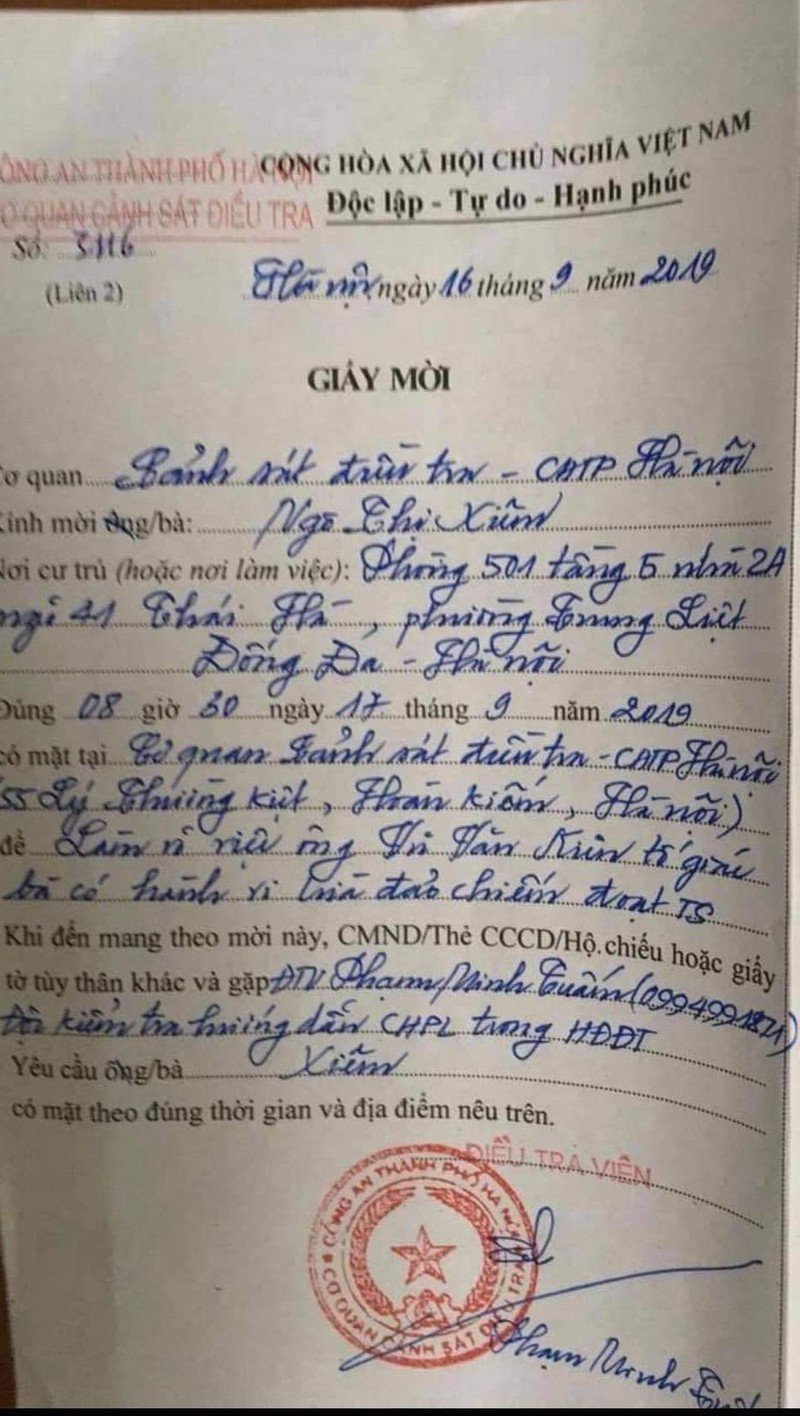 ÔNG AN THÀNH PHỐ HÀ NỘI
Ơ QUAN CẢNH SÁT ĐIỀU TRA
CỘNG HÒA XÃ HỘI CHỦ NGHĨA VIỆT NAM
Độc lập - Tự do - Hạnh phúc
Số: 5116
(Liên 2)
Hà nội ngày 16 tháng 9 năm 2019
GIẤY MỜI
ơ quan Cảnh sát điều tra - CATP Hà nội
Kính mời ông/bà: Ngô Thị Xiêm
Nơi cư trú (hoặc nơi làm việc): Phòng 501 tầng 5 nhà 2A
ngõ 41 Thái Hà, phường Trung Liệt
Đống Đa - Hà nội
Đúng 08 giờ 30 ngày 17 tháng 9 năm 2019
có mặt tại Cơ quan Cảnh sát điều tra - CATP Hà nội
55 Lý Thường Kiệt, Hoàn Kiếm, Hà nội)
để Làm rõ việc ông Vũ Văn Kiên tố giác
bà có hành vi lừa đảo chiếm đoạt TS
Khi đến mang theo mời này, CMND/Thẻ CCCD/Hộ chiếu hoặc giấy
tờ tùy thân khác và gặp ĐTV Phạm Minh Tuấn (0994991871)
Đội kiểm tra hướng dẫn CHPL trong HĐĐT
Yêu cầu ông/bà Xiêm
có mặt theo đúng thời gian và địa điểm nêu trên.
ĐIỀU TRA VIÊN
CÔNG AN THÀNH PHỐ HÀ NỘI
CƠ QUAN CẢNH SÁT ĐIỀU TRA
Phạm Minh